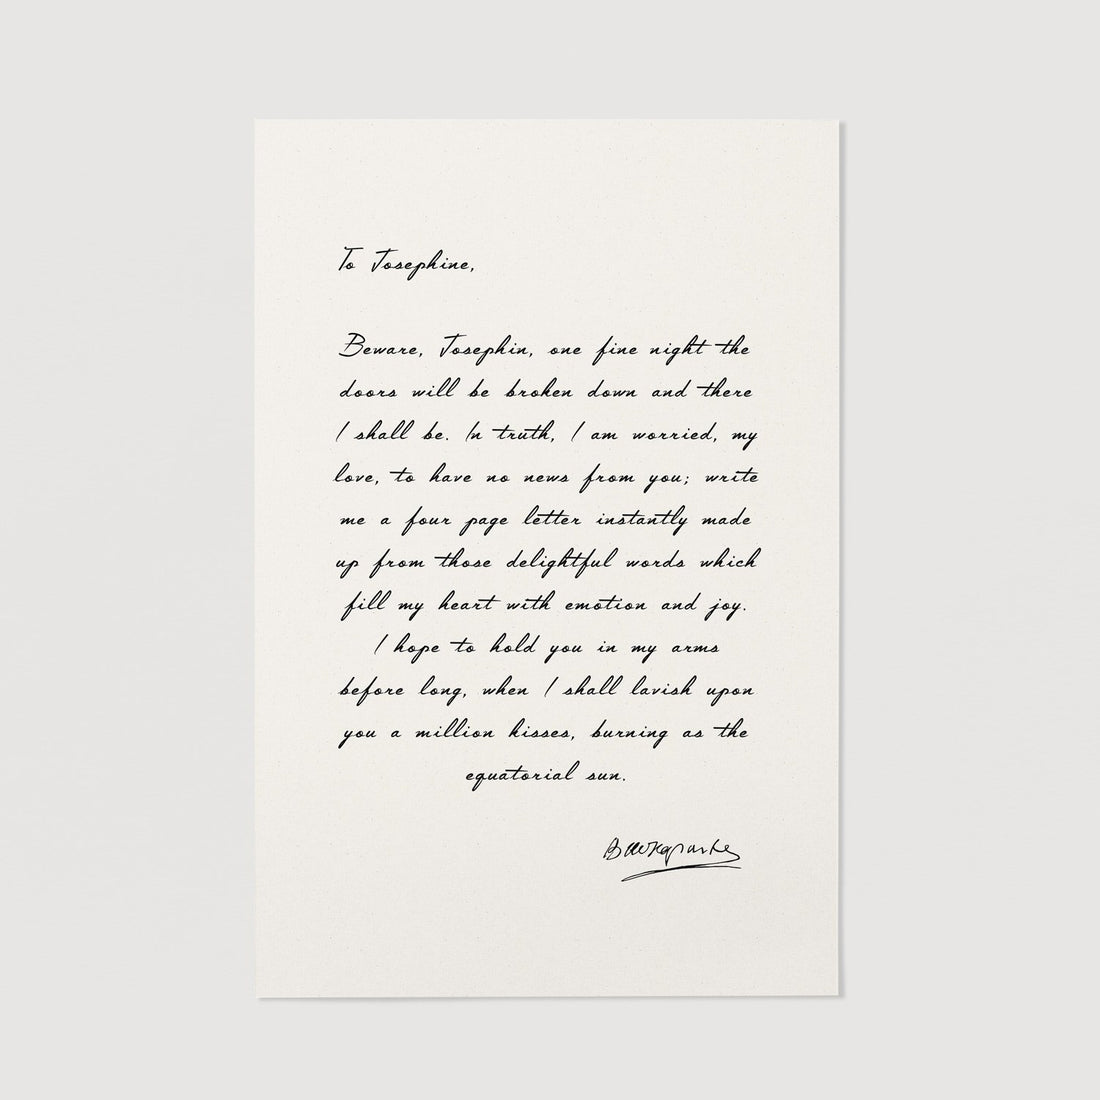 To Josephine,
Beware, Josephin, one fine night the
doors will be broken down and there
I shall be. In truth, I am worried, my
love, to have no news from you; write
me a four page letter instantly made
up from those delightful words which
fill my heart with emotion and joy.
I hope to hold you in my arms
before long, when I shall lavish upon
you a million kisses, burning as the
equatorial sun.